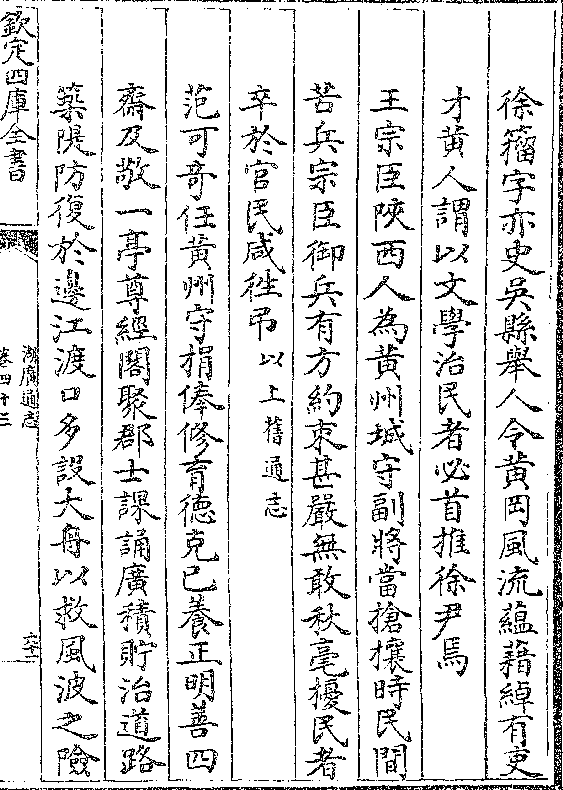 徐籀字亦史吳縣舉人令黄岡風流藴藉綽有吏
才黄人謂以文學治民者必首推徐尹焉
王宗臣陜西人為黄州城守副將當搶攘時民間
苦兵宗臣御兵有方約束甚嚴無敢秋毫擾民者
卒於官民咸徃弔以上舊通志
范可奇任黄州守捐俸修育德克已養正明善四
齋及敬一亭尊經閣聚郡士課誦廣積貯治道路
築隄防復於邊江渡口多設大舟以救風波之險
欽定四庫全書
湖廣通志
卷四十三